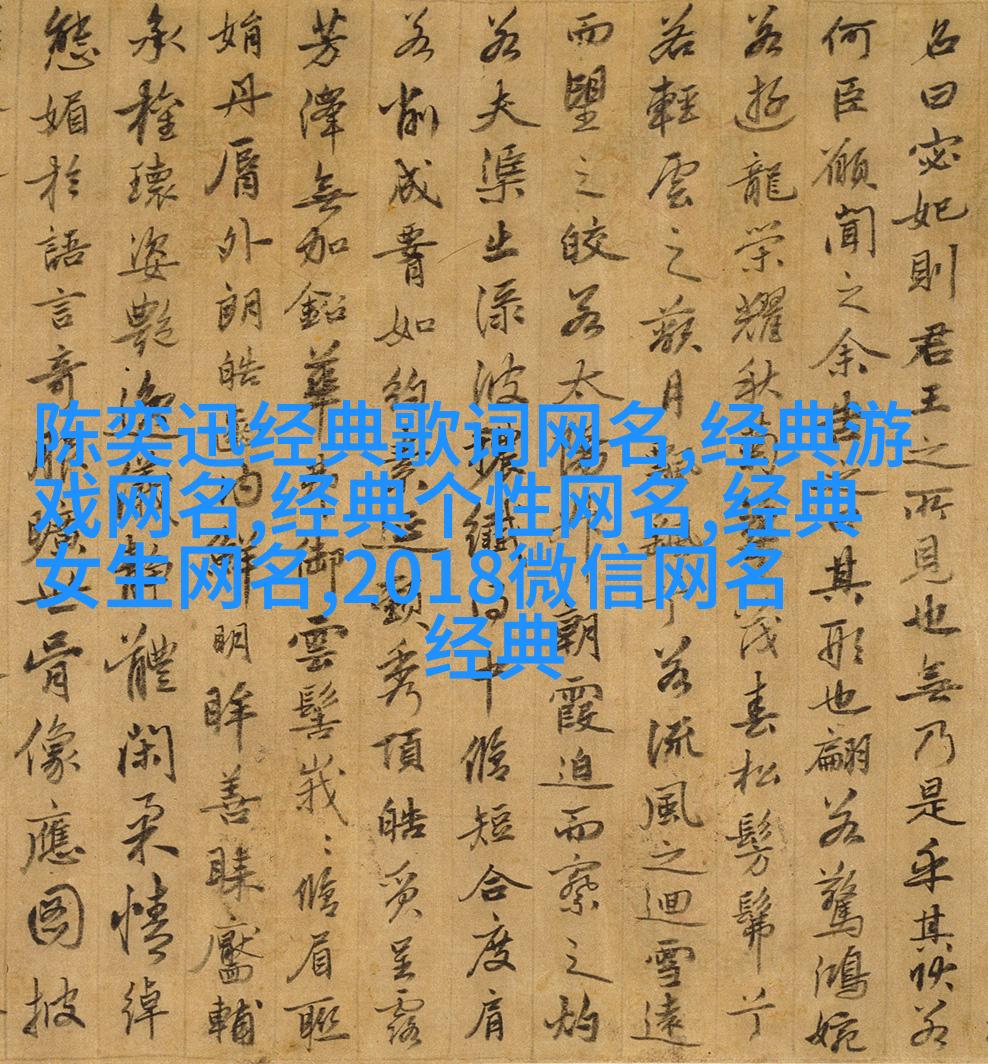 名曰宓妃則君王之所見也無乃是乎其狀若
何臣願聞之余告之曰其形也翩若驚鴻婉
若遊龍荣耀秋菊華茂春松髣髴兮
若輕雲之蔽月飄颻兮若流風之迴雪遠
而望之皎若太陽升朝霞迫而察之灼
若夫渠出渌波穠纖得中脩短合度肩
若削成如約素延頸秀項皓質呈露
芳澤無加鉛華弗御雲髻峩〻脩眉聯
娟丹脣外朗皓齒内鮮明眸善睞靨輔
承權瓌姿艷逸儀静體閑柔情綽
態媚於語言奇服曠世骨像應圖披
陈奕迅经典歌词网名,经典游
戏网名,经典个性网名,经典
女生网名,2018微信网名
经典